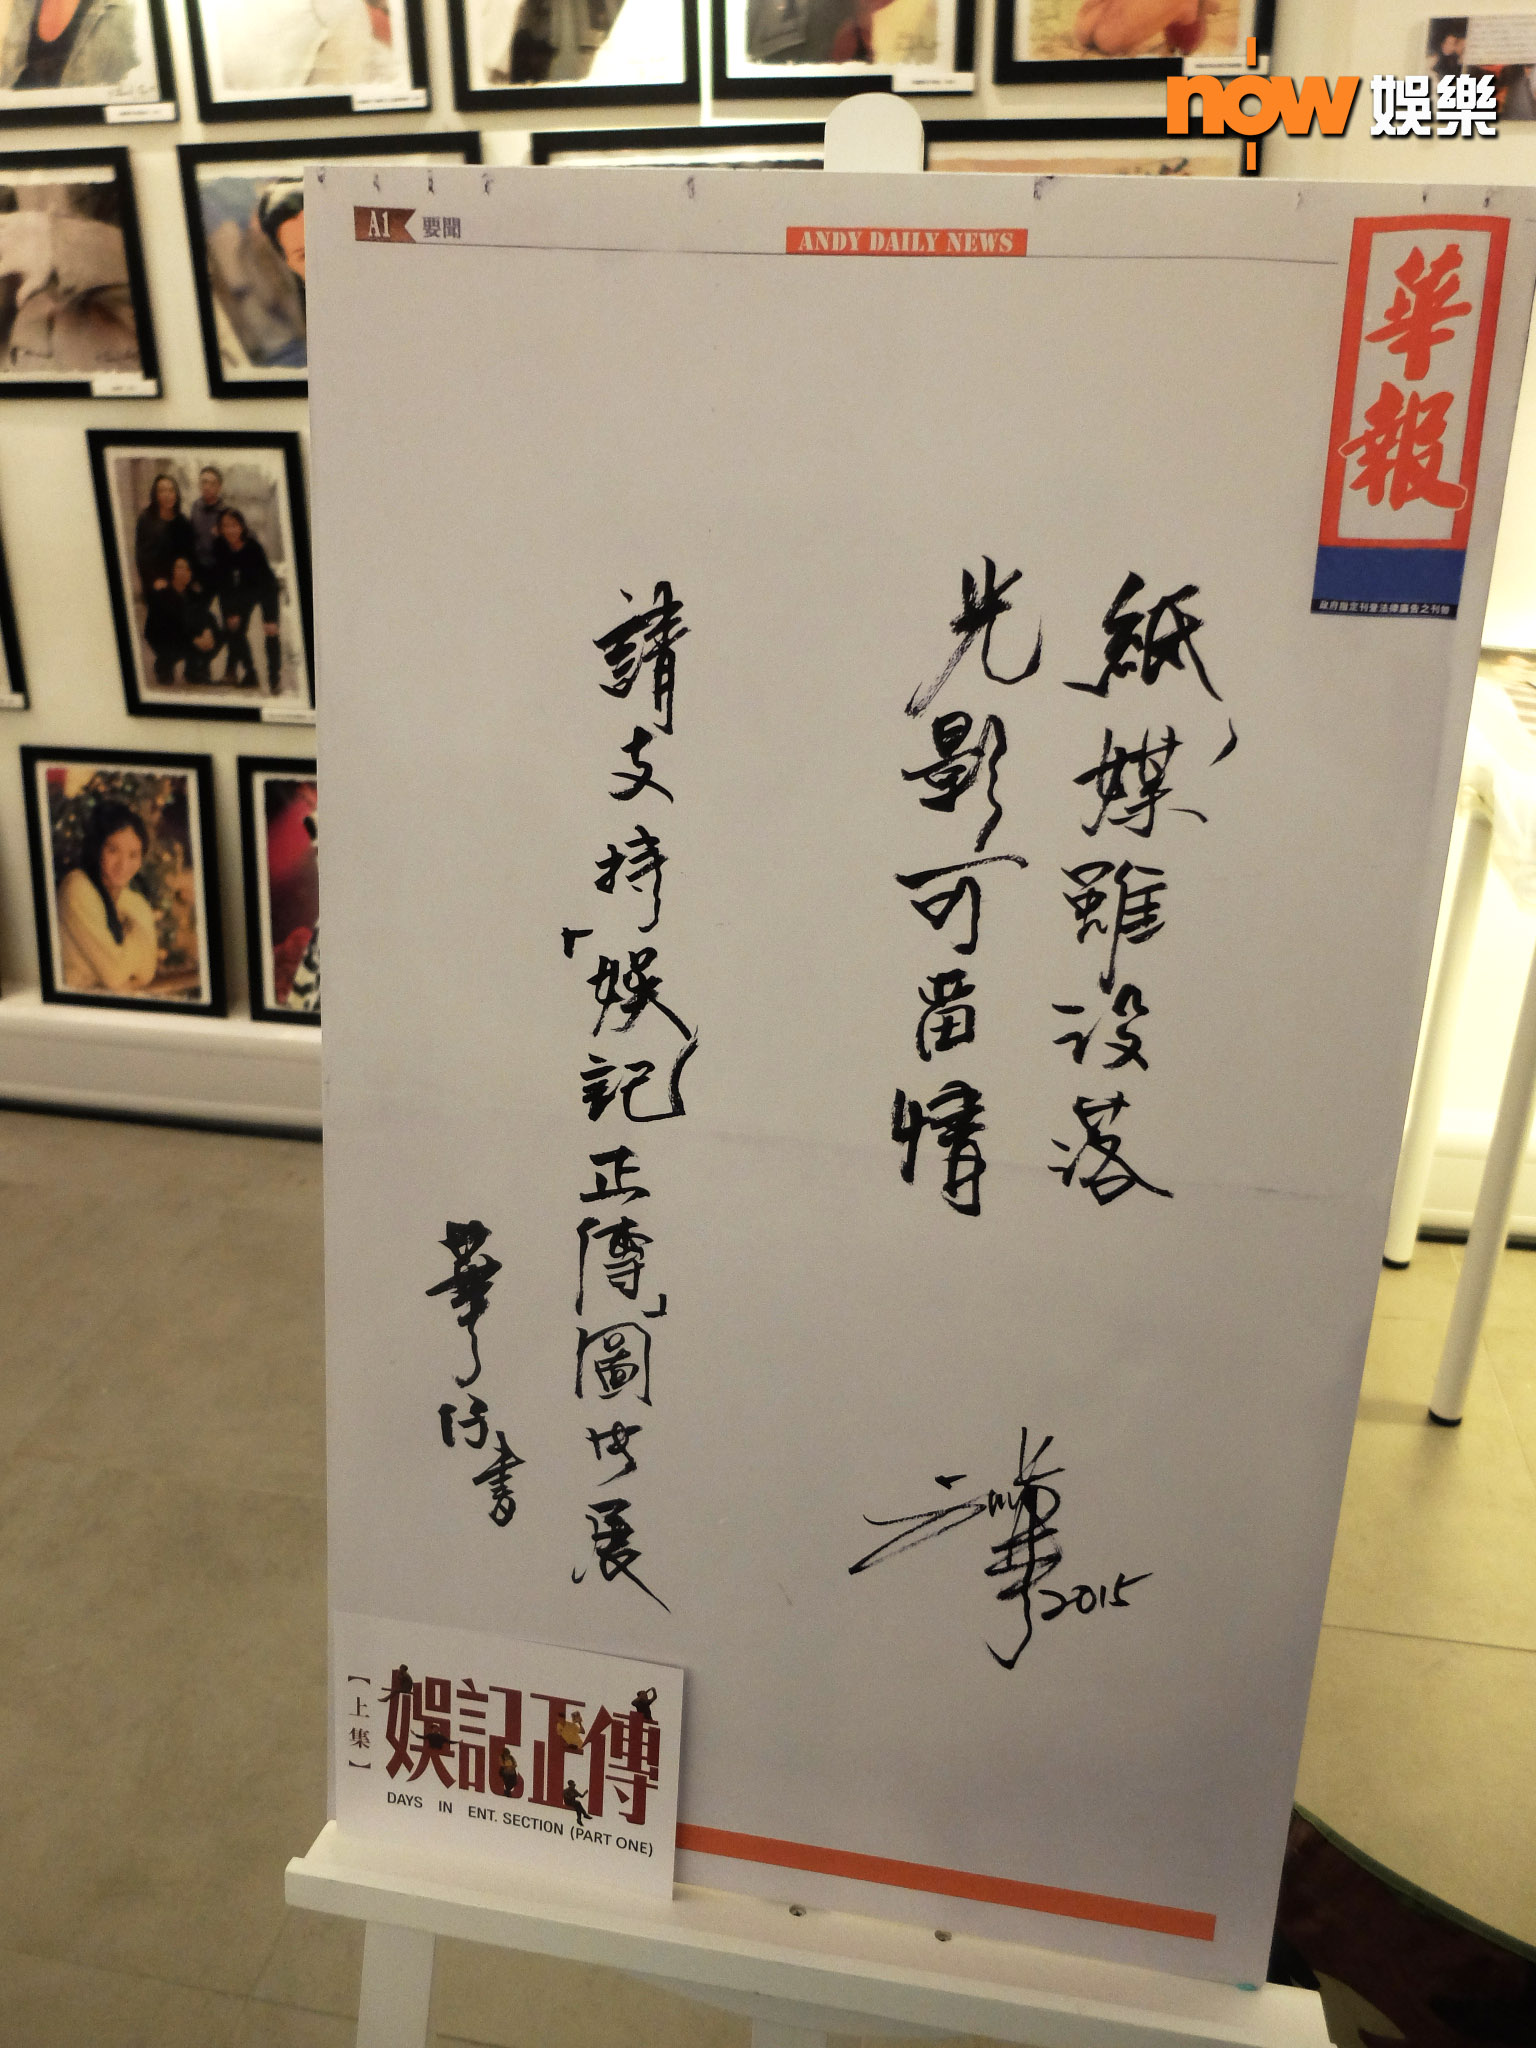 now 娛樂
A1 要聞
ANDY DAILY NEWS
華報
政府指定刊登法律廣告之刊物
紙媒雖沒落
光影可留情
2015
請支持「娛記正傳」圖片展
華仔書
【上集】
娛記正傳
DAYS IN ENT. SECTION (PART ONE)